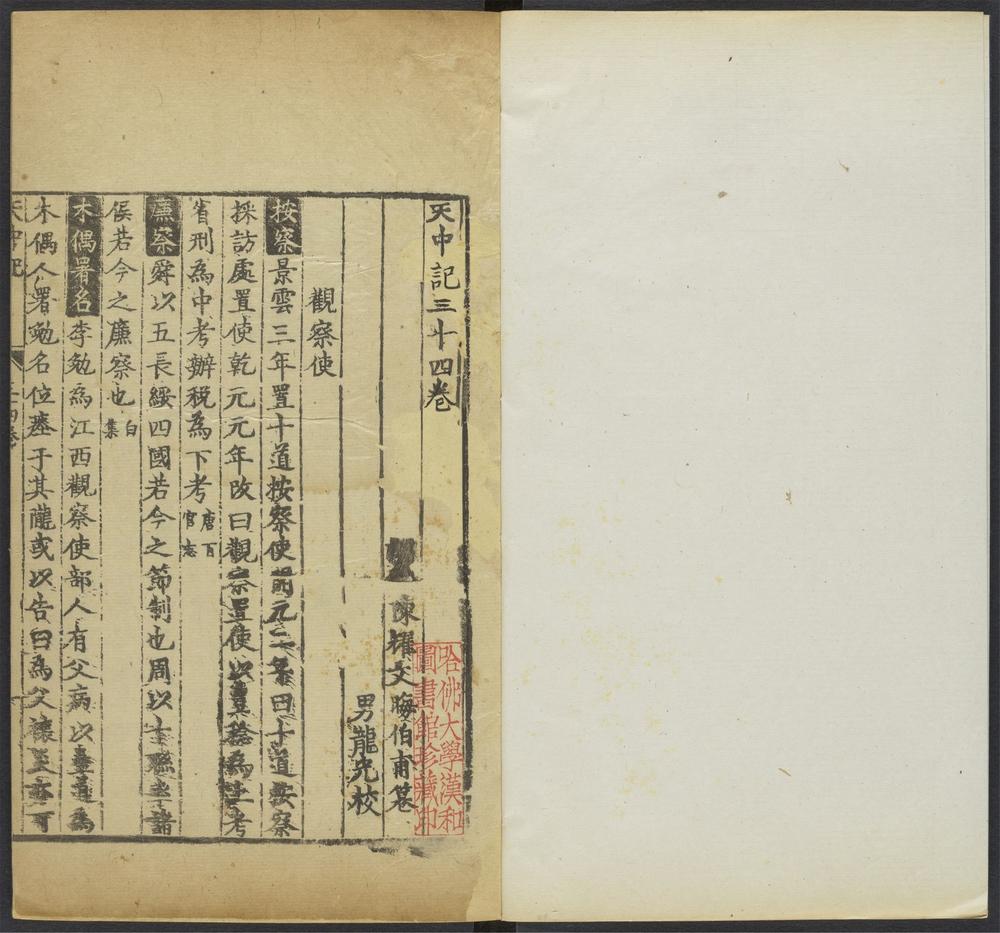 天中記三十四卷
陳耀文晦伯甫纂
男龍光校
觀察使
按察景雲三年置十道按察使開元二年曰十道按察
採訪處置使乾元元年改曰觀察置使以豐稔為上考
省刑為中考辦稅為下考唐百官志
廉察舜以五長綏四國若今之節制也周以士聯諸
侯若今之廉察也白集
木偶署名李勉為江西觀察使部人有父病以蠱道為
木偶人署勉名位瘞于其隴或以告曰為父禳是亦可
天中記
哈佛大學漢和
圖書館珍藏印